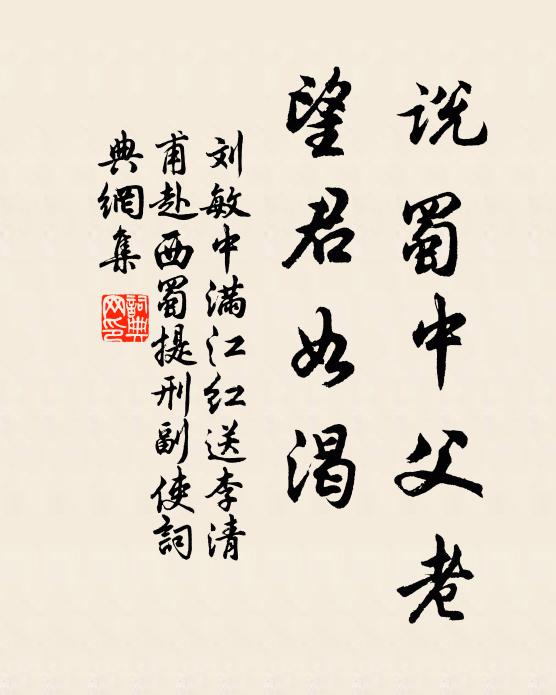 说蜀中父老
望君如渴
刘敏中满江红送李清
甫赴西蜀提刑副使词
典網集
詞典
网印